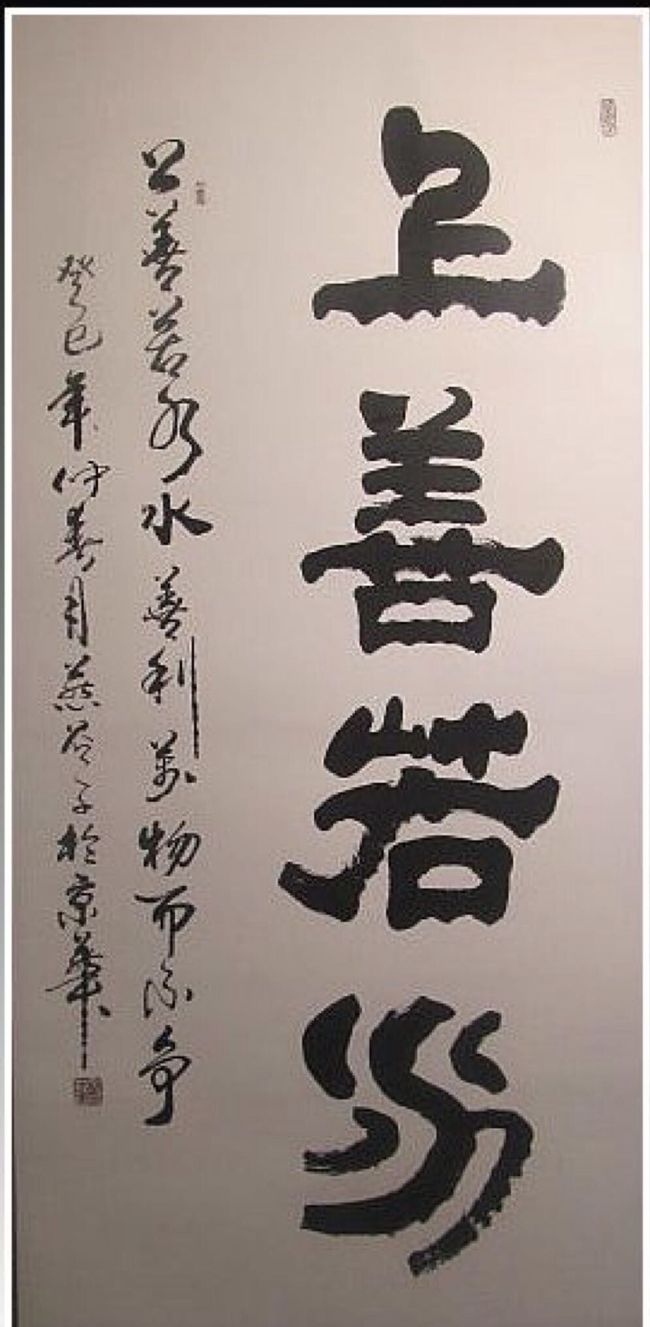 上善若水
上善若水水善利万物而不争
癸巳年仲春月燕谷子於京华